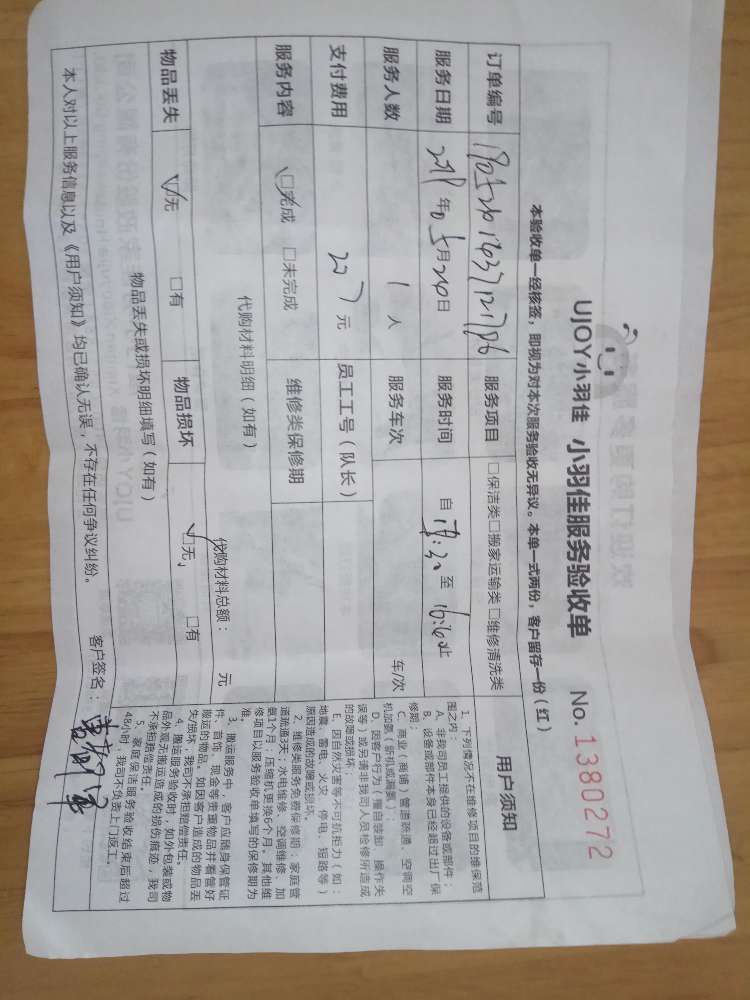 UJOY小羽佳 小羽佳服务验收单 No. 1380272
本验收单一经核签，即视为对本次服务验收无异议。本单一式两份，客户留存一份（红）
订单编号 服务项目 □保洁类□搬家运输类□维修清洗类
服务日期 年05月20日 服务时间 自 :30 至 止
服务人数 1 人 服务车次 车/次
支付费用 元 员工工号（队长）
服务内容 ☑完成 □未完成 维修类保修期
代购材料明细（如有）
代购材料总额： 元
物品丢失 ☑无 □有 物品损坏 ☑无 □有
物品丢失或损坏明细填写（如有）
本人对以上服务信息以及《用户须知》均已确认无误，不存在任何争议纠纷。
客户签名：
用户须知
1、下列情况不在维修项目的维保范
围之内：
A、非我司员工提供的设备或部件；
B、设备或部件本身已经超过出厂保
修期；
C、商业（商铺）管道疏通，空调空
机加氨（新机或漏氨）；
D、因客户行为（擅自装卸、操作失
误等）或吊请非我司人员检修所造成
的故障或损坏
E、因自然灾害等不可抗拒力（如：
地震、雷电、火灾、停电、短路等）
原因造成的故障或损坏。
2、维修类服务免费保修期：家庭管
道疏通3天；水电维修、空调维修、加
氨1个月；压缩机更换6个月。其他维
修项目以服务验收单填写的保修期为
准。
3、搬运服务中，客户应随身保管证
件、首饰、现金等贵重物品并看管好
搬运的物品。如因客户造成的物品丢
失/损坏，我司不承担赔偿责任。
4、搬运服务验收时，如外包装或物
品外观无搬运造成的损伤痕迹，我司
不承担赔偿责任。
5、家庭保洁服务验收结束后超过
48小时，我司不负责上门返工。